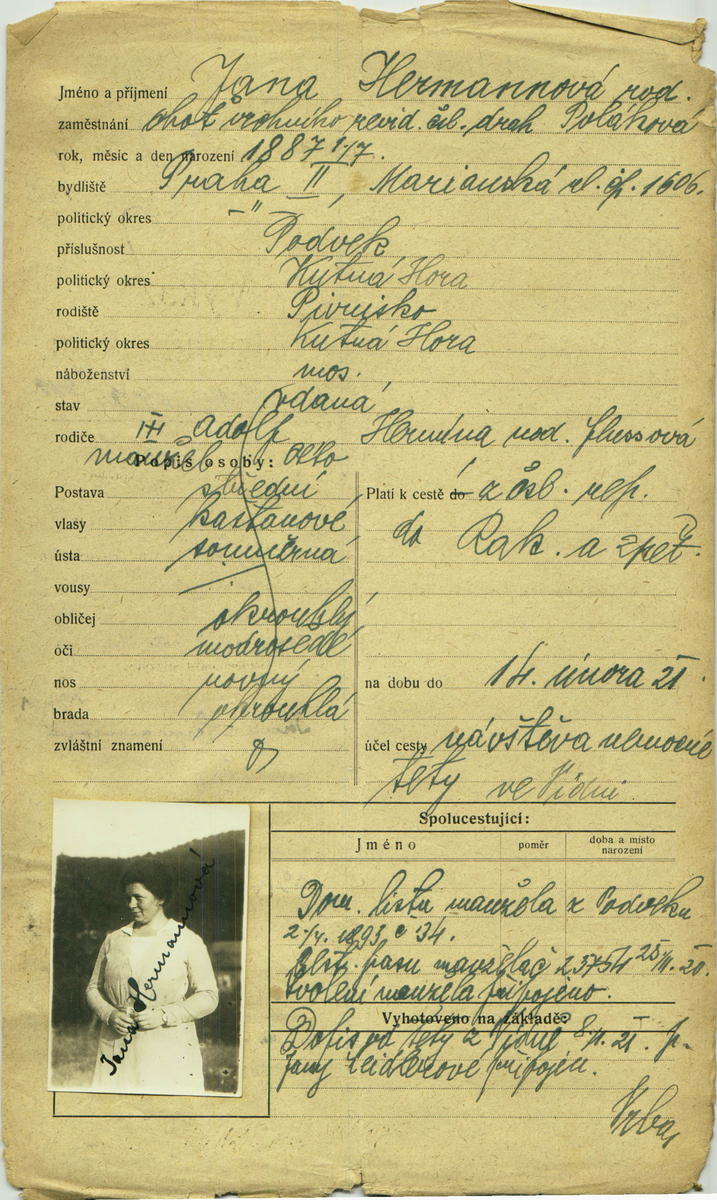 Jméno a příjmení Jana Hermannová rod.
zaměstnání choť vrchního revid. čsl. drah Poláková
rok, měsíc a den narození 1887 1/7.
bydliště Praha II, Marianská ul. čp. 1606.
politický okres — " —
příslušnost Podvek
politický okres Kutná Hora
rodiště
politický okres Kutná Hora
náboženství mos.
stav vdaná
rodiče Adolf Hermína rod.
manžel Otto
Popis osoby:
Postava střední
vlasy kaštanové
ústa souměrná
vousy —
obličej okrouhlý
oči modrošedé
nos rovný
brada okrouhlá
zvláštní znamení
Platí k cestě do z čsl. rep.
do Rak. a zpět.
na dobu do 14. února 21.
účel cesty návštěva nemocné
tety ve Vídni.
Spolucestující:
Jméno poměr doba a místo narození
Dom. listu manžela z Podveku
1893 č 34.
pasu 25/11. 20.
Svolení manžela připojeno.
Vyhotoveno na základě:
Dopis od tety z Vídně 21.
připojen.
Jana Hermannová